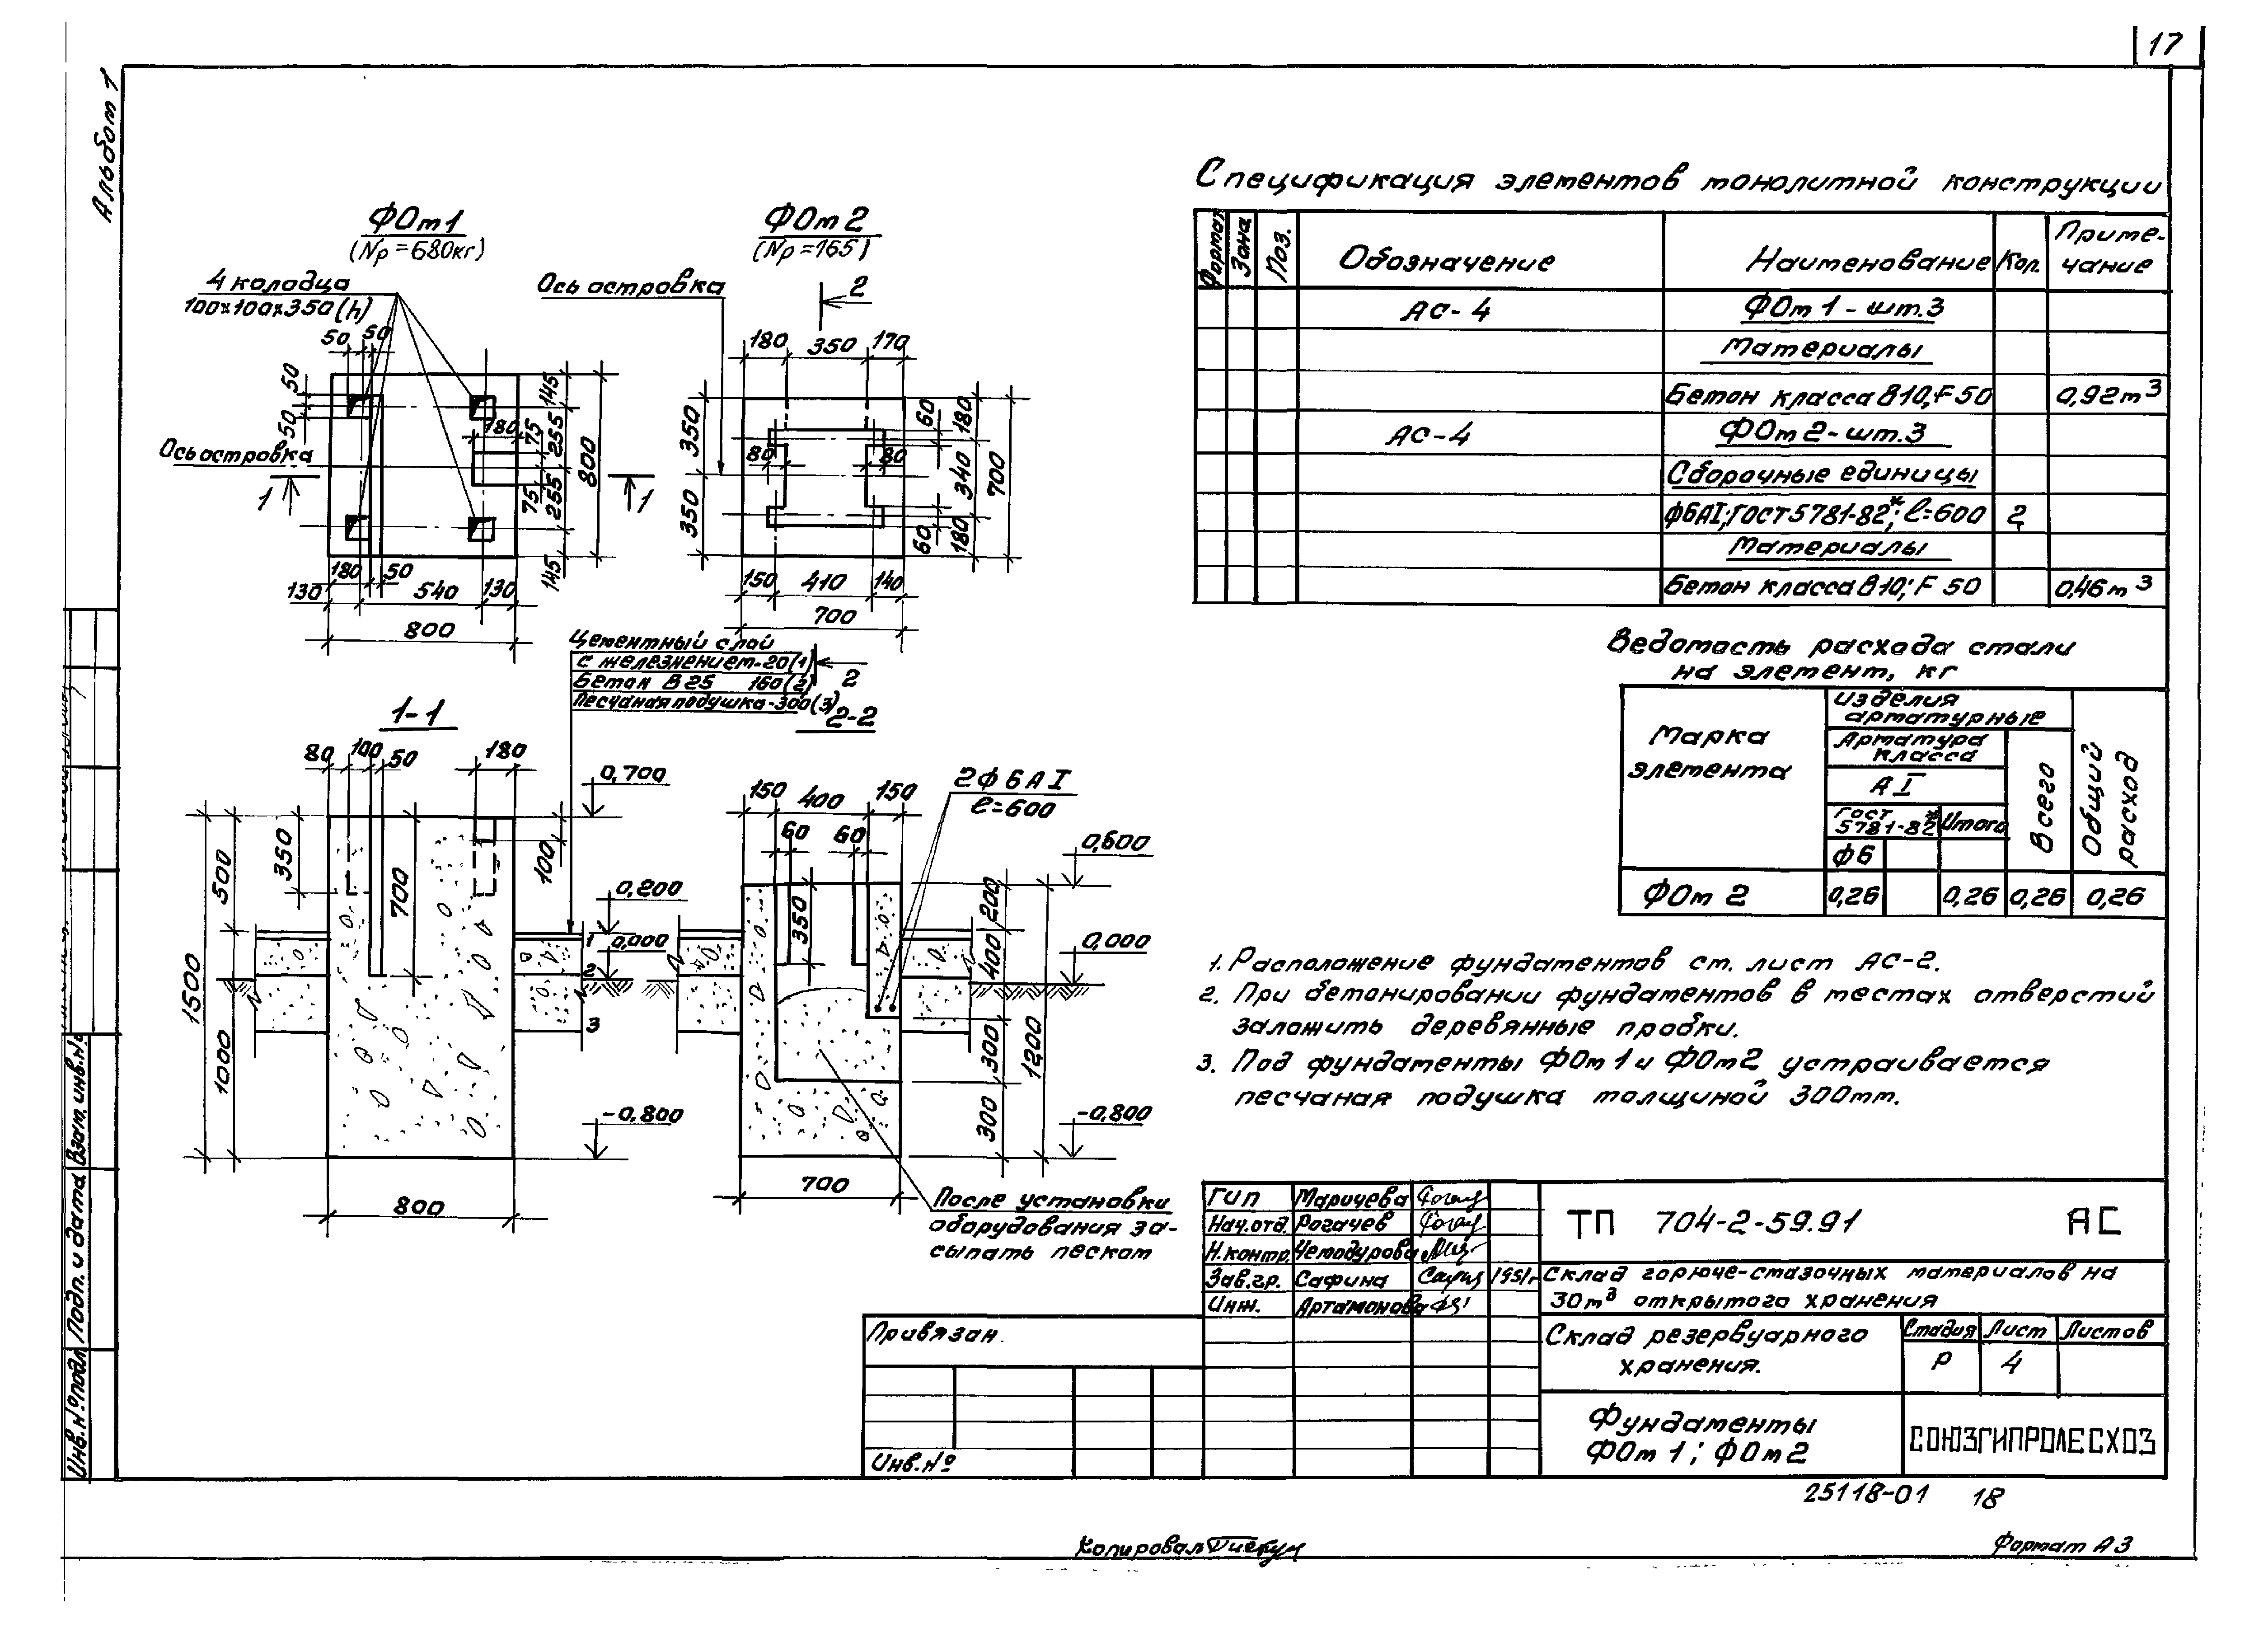 17
Альбом 1
ФОм1
(Np=680кг)
4 колодца
100х100х350(h)
50 50
50
50
Ось островка
1
1
180
75
75
145
255
255
145
800
180 50
130 540 130
800
ФОм2
(Np=165)
Ось островка
2
180 350 170
350
350
80
80
60
60
180
340
180
700
150 410 140
700
2
Цементный слой
с железнением-20(1)
Бетон В25 160(2)
Песчаная подушка-300(3)
1-1
80 100 50 180
0,700
500
350
700
100
0,200
0,000
1
2
3
1500
1000
-0,800
800
2-2
2Ф6АI
ℓ=600
150 400 150
60 60
350
0,600
200
400
0,000
300
1200
300
-0,800
700
После установки
оборудования за-
сыпать песком
Спецификация элементов монолитной конструкции
Формат Зона Поз. Обозначение Наименование Кол. Приме-
чание
АС-4 ФОм1-шт.3
Материалы
Бетон класса В10, F50 0,92м³
АС-4 ФОм2-шт.3
Сборочные единицы
Ф6АI; ГОСТ 5781-82*; ℓ=600 2
Материалы
Бетон класса В10; F 50 0,46м³
Ведомость расхода стали
на элемент, кг
Марка
элемента
Изделия
арматурные
Арматура
класса
АI
ГОСТ
5781-82* Итого
Ф6
Всего
Общий
расход
ФОм2 0,26 0,26 0,26 0,26
1. Расположение фундаментов см. лист АС-2.
2. При бетонировании фундаментов в местах отверстий
заложить деревянные пробки.
3. Под фундаменты ФОм1 и ФОм2 устраивается
песчаная подушка толщиной 300мм.
ГИП Маричева
Нач.отд. Рогачев
Н.контр. Чемодурова
Зав.гр. Сафина 1991г
Инж. Артамонова
ТП 704-2-59.91 АС
Склад горюче-смазочных материалов на
30м³ открытого хранения
Склад резервуарного
хранения.
Стадия Лист Листов
Р 4
Фундаменты
ФОм1; ФОм2
СОЮЗГИПРОЛЕСХОЗ
Привязан.
Инв.№
Взам.инв.№
Подп. и дата
Инв.№подл
25118-01 18
Копировал
Формат А3